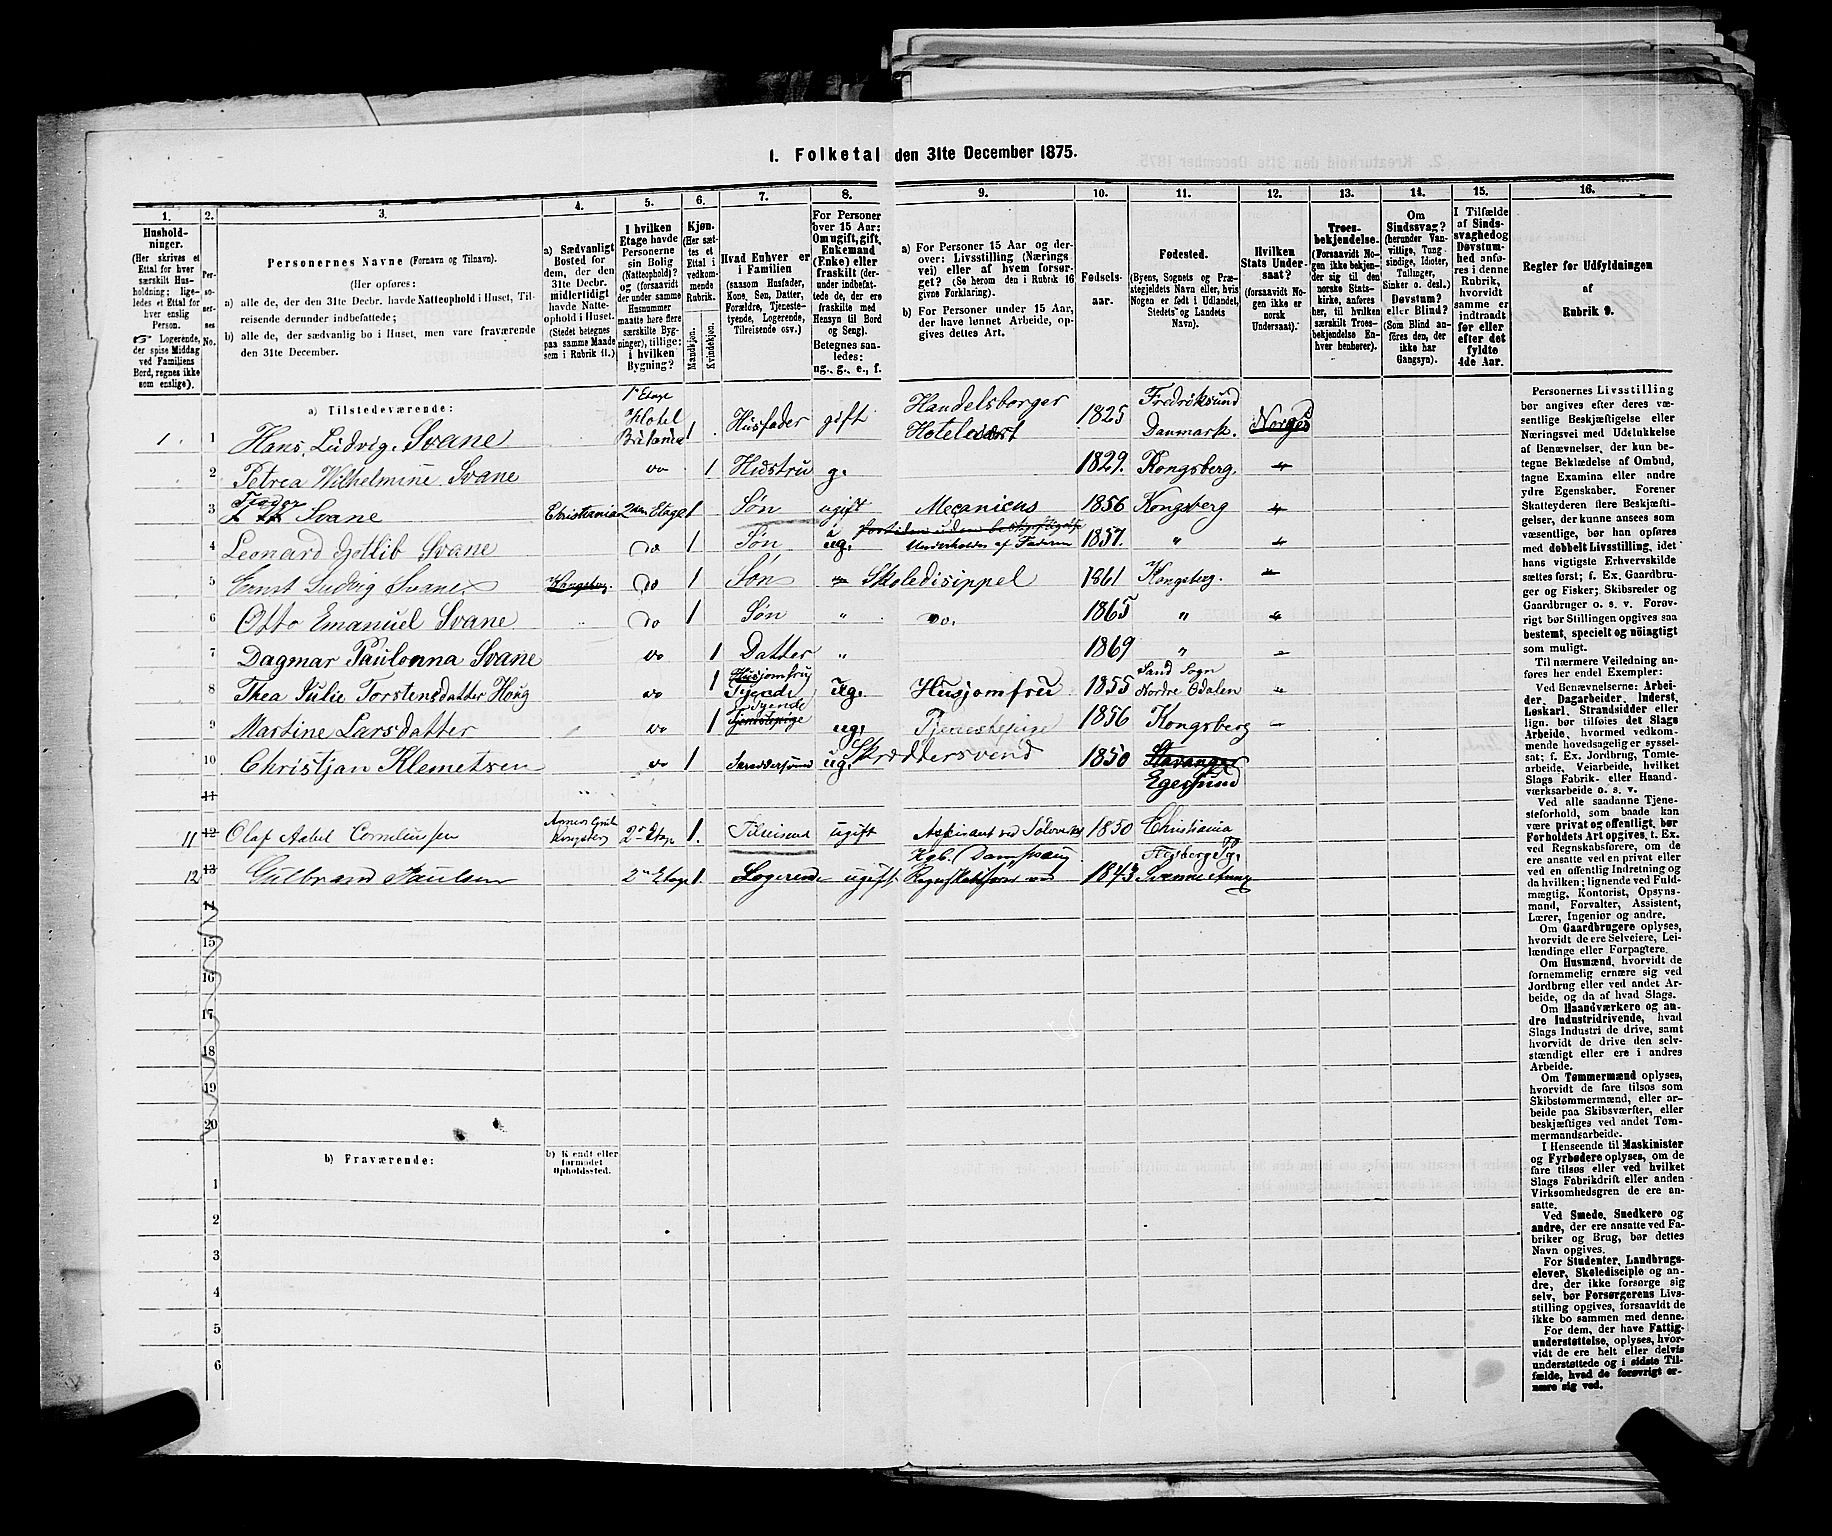 1. Folketal den 31te December 1875.
1.
2.
3.
4.
5.
6.
7.
8.
9.
10.
11.
12.
13.
14.
15.
16.
Hushold-
ninger.
(Her skrives et
Ettal for hver
særskilt Hus-
holdning; lige-
ledes et Ettal for
hver enslig
Person.
☞ Logerende,
der spise Middag
ved Familiens
Bord, regnes ikke
som enslige).
Per-
so-
ner-
nes
No.
Personernes Navne (Fornavn og Tilnavn).
(Her opføres:
a) alle de, der den 31te Decbr. havde Natteophold i Huset, Til-
reisende derunder indbefattede;
b) alle de, der sædvanlig bo i Huset, men vare fraværende
den 31te December.
a) Sædvanligt
Bosted for
dem, der den
31te Decbr.
midlertidigt
havde Natte-
ophold i Huset.
(Stedet betegnes
paa samme Maade
som i Rubrik 11.)
I hvilken
Etage havde
Personerne
sin Bolig
(Natteophold)?
og (forsaavidt
der under samme
Husnummer
maatte høre flere
særskilte Byg-
ninger), tillige:
i hvilken
Bygning?
Kjøn.
(Her sæt-
tes et
Ettal i
vedkom-
mende
Rubrik.)
Mandkjøn.
Kvindekjøn.
Hvad Enhver er
i Familien
(saasom Husfader,
Kone, Søn, Datter,
Forældre, Tjeneste-
tyende, Logerende,
Tilreisende osv.)
For Personer
over 15 Aar:
Om ugift, gift,
Enkemand
(Enke) eller
fraskilt (der-
under indbefat-
tede de, der ere
fraskilte med
Hensyn til Bord
og Seng).
Betegnes saa-
ledes:
ug., g., e., f.
a) For Personer 15 Aar og der-
over: Livsstilling (Nærings
vei) eller af hvem forsør-
get? (Se herom den i Rubrik 16
givne Forklaring).
b) For Personer under 15 Aar,
der have lønnet Arbeide, op-
gives dettes Art.
Fødsels-
aar.
Fødested.
(Byens, Sognets og Præ-
stegjeldets Navn eller, hvis
Nogen er født i Udlandet,
Stedets og Landets
Navn).
Hvilken
Stats Under-
saat?
(forsaavidt No-
gen ikke er
norsk
Undersaat).
Troes-
bekjendelse.
(Forsaavidt No-
gen ikke bekjen-
der sig til den
norske Stats-
kirke, anføres
her, til hvilken
særskilt Troes-
bekjendelse En-
hver henhører).
Om
Sindssvag?
(herunder Van-
vittige, Tung-
sindige, Idioter,
Tullinger,
Sinker o. desl.)
Døvstum?
eller Blind?
(Som Blind an-
føres den, der
ikke har
Gangsyn).
I Tilfælde
af Sinds-
svaghed og
Døvstum-
hed anfø-
res i denne
Rubrik,
hvorvidt
samme er
indtraadt
før eller
efter det
fyldte
4de Aar.
Regler for Udfyldningen
af
Rubrik 9.
a) Tilstedeværende:
1 1 Hans Ludvig Svane 1ste Etage Hotel Britania 1 Husfader gift Handelsborger Hotelvært 1825 Fredriksund Danmark. Norges
2 Petrea Wilhelmine Svane do 1 Hustru g. 1829. Kongsberg. "
3 Teodor Svane Christiania 2den Etage 1 Søn ugift Mecanicus 1856 Kongsberg "
4 Leonard Gotlib Svane do 1 Søn ug. Underholdes af Faderen 1857. " "
5 Ernst Ludvig Svane Kongsberg do 1 Søn " Skoledisippel 1861 Kongsberg. "
6 Otto Emanuel Svane do 1 Søn " do. 1865 " "
7 Dagmar Paulonna Svane do 1 Datter " 1869 " "
8 Thea Julie Torstensdatter Houg do 1 Husjomfru Tyende ug. Husjomfru 1855 Sand Sogn Nordre Odalen "
9 Martine Larsdatter do 1 Tyende Tjenestepige ug. Tjenestepige 1856 Kongsberg "
10 Christjan Klemetsen do 1 Skræddersvend ug. Skræddersvend 1850 Stavanger Egersund
11
11 12 Olaf Aabel Corneliussen Kongsberg 2den Etage 1. Tilreisend ugift Aspirant ved Sølvverket 1850 Christiania
12 13 Gulbrand Paulsen 2den Etage 1. Logerende ugift. Kgb. Dampsaug 1843
14
15
16
17
18
19
20
b) Fraværende:
b) Kjendt eller
formodet
Opholdssted.
1
2
3
4
5
6
Personernes Livsstilling
bør angives efter deres væ-
sentlige Beskjæftigelse eller
Næringsvei med Udelukkelse
af Benævnelser, der kun be-
tegne Beklædelse af Ombud,
tagne Examina eller andre
ydre Egenskaber. Forener
Skatteyderen flere Beskjæfti-
gelser, der kunne ansees som
væsentlige, bør han opføres
med dobbelt Livsstilling, idet
hans vigtigste Erhvervskilde
sættes først; f. Ex. Gaardbru-
ger og Fisker; Skibsreder og
Gaardbruger o. s. v. Forøv-
rigt bør Stillingen opgives saa
bestemt, specielt og nöiagtigt
som muligt.
Til nærmere Veiledning an-
føres her endel Exempler:
Ved Benævnelserne: Arbei-
der, Dagarbeider, Inderst,
Løskarl, Strandsidder eller
lign. bør tilføies det Slags
Arbeide, hvormed vedkom-
mende hovedsagelig er syssel-
sat; f. Ex. Jordbrug, Tomte-
arbeide, Veiarbeide, hvilket
Slags Fabrik- eller Haand-
værksarbeide o. s. v.
Ved alle saadanne Tjene-
steforhold, som baade kan
være privat og offentligt, bør
Forholdets Art opgives, f. Ex.
ved Regnskabsførere, om de
ere ansatte ved en privat eller
en offentlig Indretning og
da hvilken; lignende ved Fuld-
mægtig, Kontorist, Opsyns-
mand, Forvalter, Assistent,
Lærer, Ingeniør og andre.
Om Gaardbrugere oplyses,
hvorvidt de ere Selveiere, Lei-
lændinge eller Forpagtere.
Om Husmænd, hvorvidt de
fornemmelig ernære sig ved
Jordbrug eller ved andet Ar-
beide, og da af hvad Slags.
Om Haandværkere og an-
dre Industridrivende, hvad
Slags Industri de drive, samt
hvorvidt de drive den selv-
stændigt eller ere i andres
Arbeide.
Om Tømmermænd oplyses,
hvorvidt de fare tilsøs som
Skibstømmermænd, eller ar-
beide paa Skibsværfter, eller
beskjæftiges ved andet Tøm-
mermandsarbeide.
I Henseende til Maskinister
og Fyrbødere oplyses, om de
fare tilsøs eller ved hvilket
Slags Fabrikdrift eller anden
Virksomhedsgren de ere an-
satte.
Ved Smede, Snedkere og
andre, der ere ansatte ved Fa-
briker og Brug, bør dettes
Navn opgives.
For Studenter, Landbrugs-
elever, Skoledisciple og an-
dre, der ikke forsørge sig
selv, bør Forsørgerens Livs-
stilling opgives, forsaavidt de
ikke bo sammen med denne.
For dem, der have Fattig-
understøttelse, oplyses, hvor-
vidt de ere helt eller delvis
understøttede og i sidste Til-
fælde, hvad de forøvrigt er-
nære sig ved.